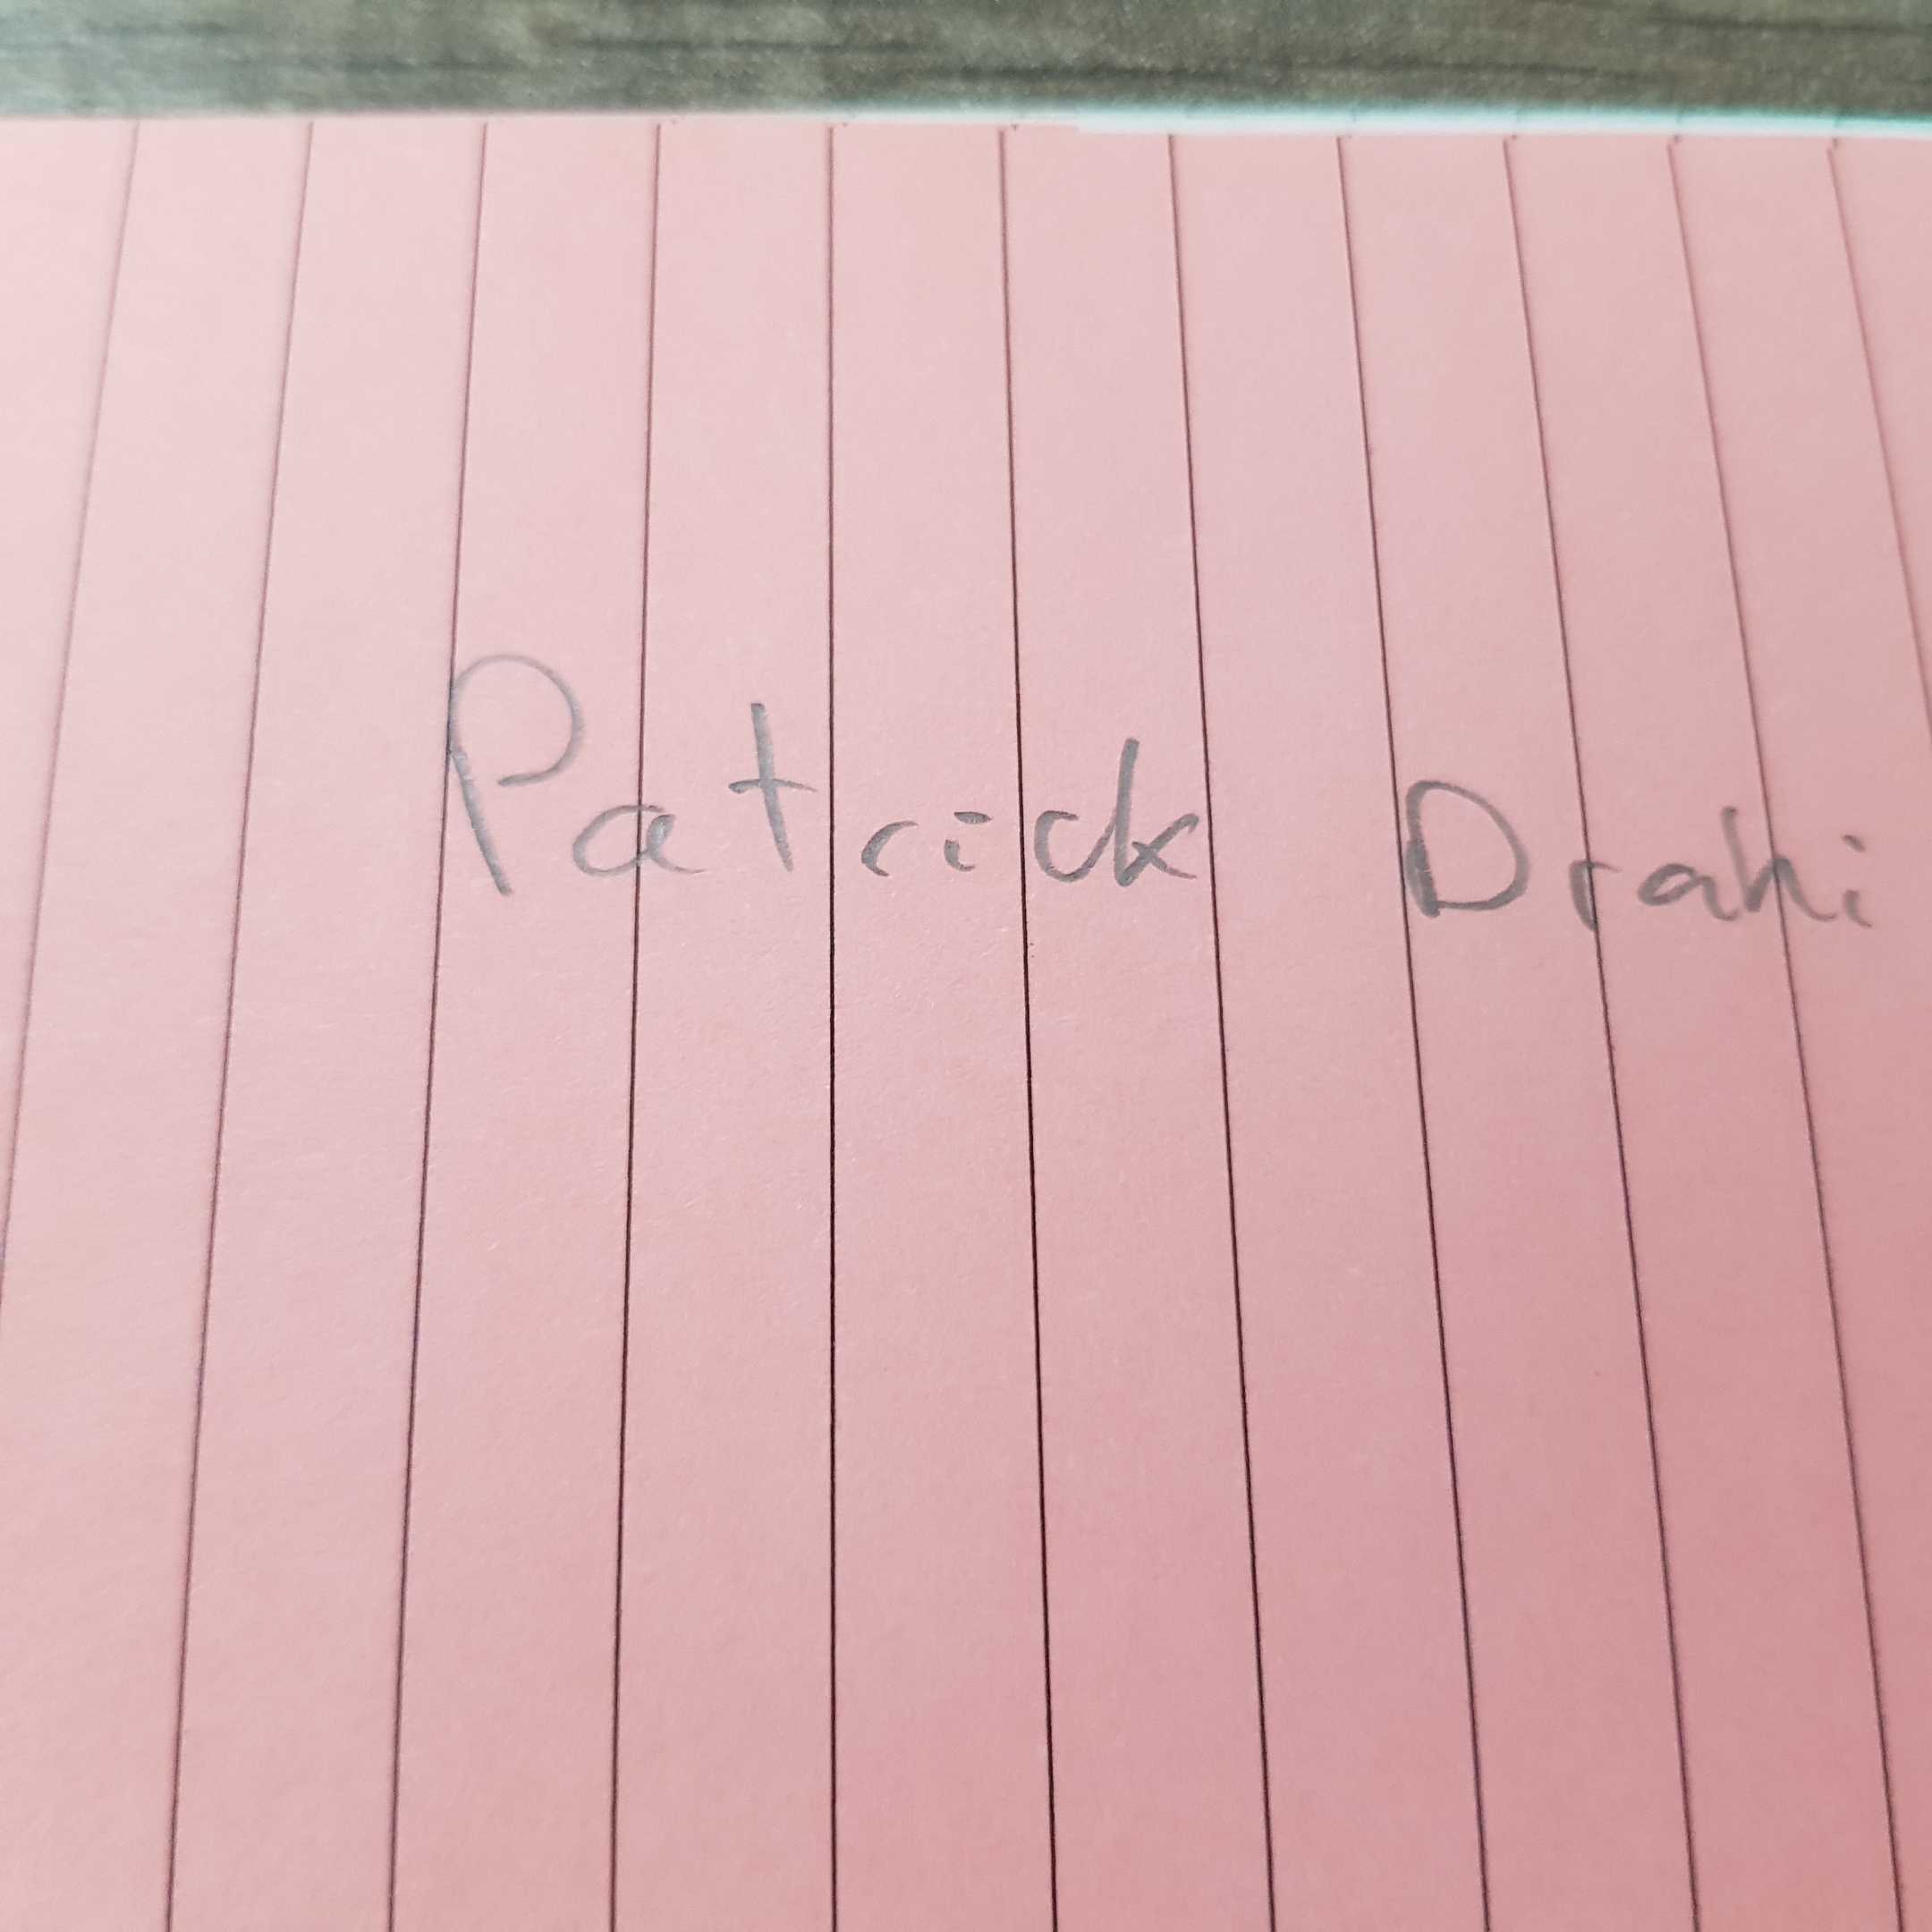 Patrick Drahi